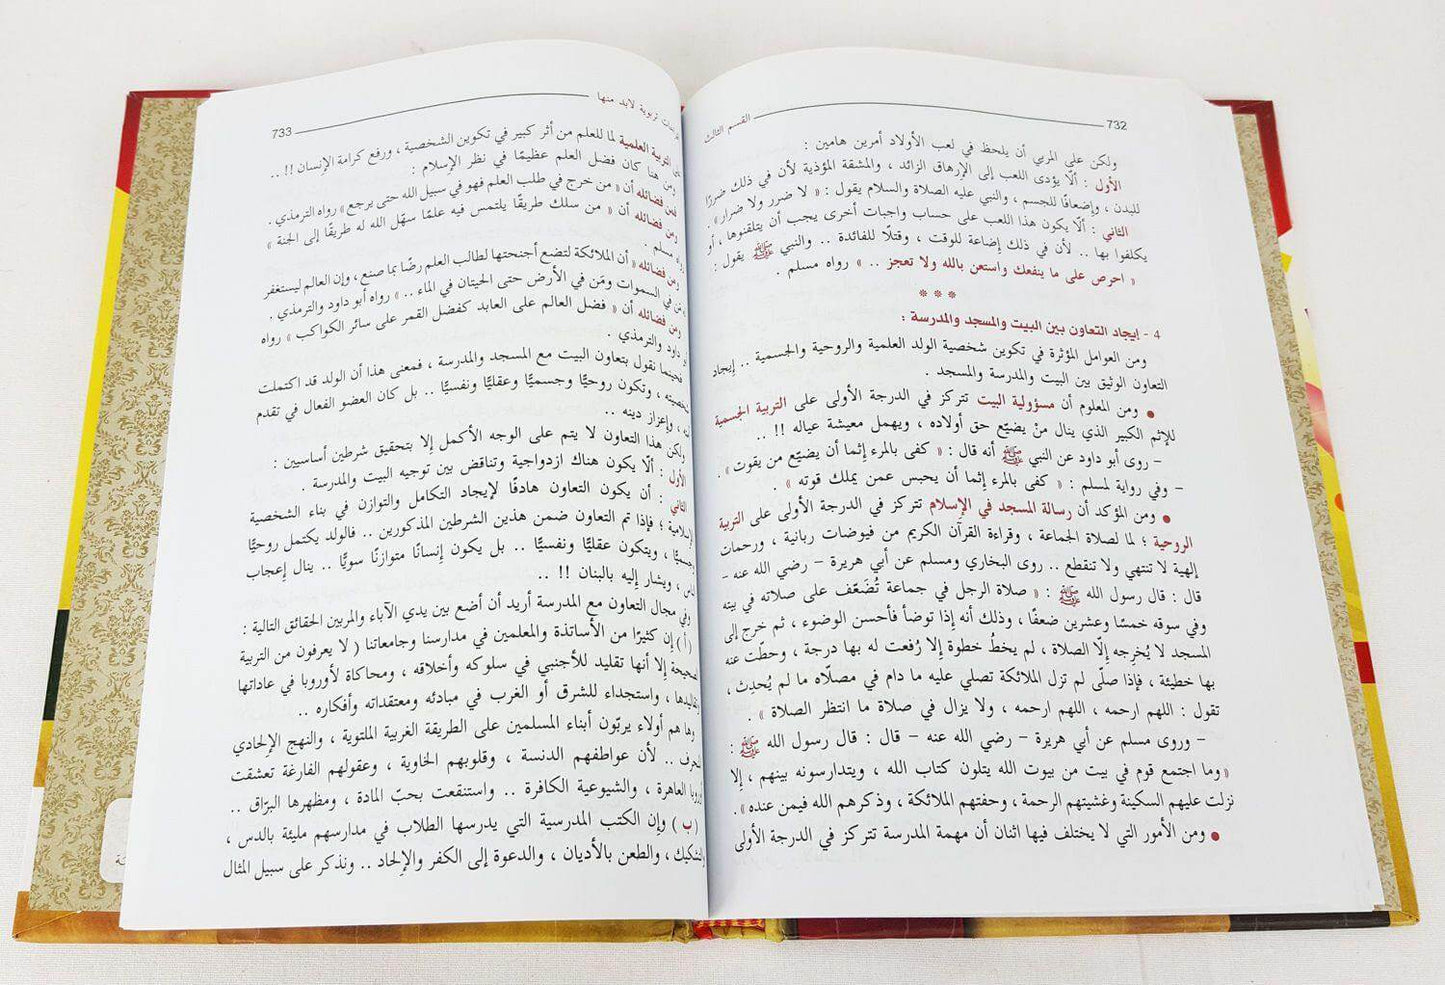 732
القسم الثالث
ولكن على المربي أن يلحظ في لعب الأولاد أمرين هامين :
الأول : ألّا يؤدى اللعب إلى الإرهاق الزائد ، والمشقة المؤذية لأن في ذلك ضررًا
للبدن ، وإضعافًا للجسم ، والنبي عليه الصلاة والسلام يقول : « لا ضرر ولا ضرار » .
الثاني : ألّا يكون هذا اللعب على حساب واجبات أخرى يجب أن يتلقنوها ، أو
يكلفوا بها .. لأن في ذلك إضاعة للوقت ، وقتلًا للفائدة .. والنبي ﷺ يقول :
« احرص على ما ينفعك واستعن بالله ولا تعجز .. » رواه مسلم .
* * *
4 - إيجاد التعاون بين البيت والمسجد والمدرسة :
ومن العوامل المؤثرة في تكوين شخصية الولد العلمية والروحية والجسمية .. إيجاد
التعاون الوثيق بين البيت والمدرسة والمسجد .
● ومن المعلوم أن مسؤولية البيت تتركز في الدرجة الأولى على التربية الجسمية
للإثم الكبير الذي ينال منْ يضيّع حق أولاده ، ويهمل معيشة عياله !! ..
– روى أبو داود عن النبي ﷺ أنه قال : « كفى بالمرء إثما أن يضيّع من يقوت » .
– وفي رواية لمسلم : « كفى بالمرء إثما أن يحبس عمن يملك قوته » .
● ومن المؤكد أن رسالة المسجد في الإسلام تتركز في الدرجة الأولى على التربية
الروحية ؛ لما لصلاة الجماعة ، وقراءة القرآن الكريم من فيوضات ربانية ، ورحمات
إلهية لا تنتهي ولا تنقطع .. روى البخاري ومسلم عن أبي هريرة – رضي الله عنه –
قال : قال رسول الله ﷺ : « صلاة الرجل في جماعة تُضَعّف على صلاته في بيته
وفي سوقه خمسًا وعشرين ضعفًا ، وذلك أنه إذا توضأ فأحسن الوضوء ، ثم خرج إلى
المسجد لا يُخرِجه إلّا الصلاة ، لم يخطُ خطوة إلا رُفعت له بها درجة ، وحطّت عنه
بها خطيئة ، فإذا صلّى لم تزل الملائكة تصلي عليه ما دام في مصلّاه ما لم يُحدِث ،
تقول : اللهم ارحمه ، اللهم ارحمه ، ولا يزال في صلاة ما انتظر الصلاة » .
– وروى مسلم عن أبي هريرة – رضي الله عنه – قال : قال رسول الله ﷺ :
« وما اجتمع قوم في بيت من بيوت الله يتلون كتاب الله ، ويتدارسونه بينهم ، إلا
نزلت عليهم السكينة وغشيتهم الرحمة ، وحفتهم الملائكة ، وذكرهم الله فيمن عنده » .
● ومن الأمور التي لا يختلف فيها اثنان أن مهمة المدرسة تتركز في الدرجة الأولى
تربوية لابد منها
733
التربية العلمية لما للعلم من أثر كبير في تكوين الشخصية ، ورفع كرامة الإنسان !! ..
ومن هنا كان فضل العلم عظيمًا في نظر الإسلام :
فمن فضائله أن « من خرج في طلب العلم فهو في سبيل الله حتى يرجع » رواه الترمذي .
ومن فضائله أن « من سلك طريقًا يلتمس فيه علمًا سهّل الله له طريقًا إلى الجنة »
رواه مسلم .
ومن فضائله « أن الملائكة لتضع أجنحتها لطالب العلم رضًا بما صنع ، وإن العالم ليستغفر
من في السموات ومَن في الأرض حتى الحيتان في الماء .. » رواه أبو داود والترمذي .
ومن فضائله أن « فضل العالم على العابد كفضل القمر على سائر الكواكب » رواه
داود والترمذي .
فحينما نقول بتعاون البيت مع المسجد والمدرسة ، فمعنى هذا أن الولد قد اكتملت
شخصيته ، وتكون روحيًّا وجسميًّا وعقليًّا ونفسيًّا .. بل كان العضو الفعال في تقدم
، وإعزاز دينه ..
ولكن هذا التعاون لا يتم على الوجه الأكمل إلا بتحقيق شرطين أساسيين :
الأول : ألّا يكون هناك ازدواجية وتناقض بين توجيه البيت والمدرسة .
الثاني : أن يكون التعاون هادفًا لإيجاد التكامل والتوازن في بناء الشخصية
؛ فإذا تم التعاون ضمن هذين الشرطين المذكورين .. فالولد يكتمل روحيًّا
، ويتكون عقليًّا ونفسيًّا .. بل يكون إنسانًا متوازنًا سويًّا .. ينال إعجاب
، ويشار إليه بالبنان !! ..
وفي مجال التعاون مع المدرسة أريد أن أضع بين يدي الآباء والمربين الحقائق التالية :
( أ ) إن كثيرًا من الأساتذة والمعلمين في مدارسنا وجامعاتنا ( لا يعرفون من التربية
إلا أنها تقليد للأجنبي في سلوكه وأخلاقه ، ومحاكاة لأوروبا في عاداتها
، واستجداء للشرق أو الغرب في مبادئه ومعتقداته وأفكاره ..
وها هم أولاء يربّون أبناء المسلمين على الطريقة الغربية الملتوية ، والنهج الإلحادي
.. لأن عواطفهم الدنسة ، وقلوبهم الخاوية ، وعقولهم الفارغة تعشقت
العاهرة ، والشيوعية الكافرة .. واستنقعت بحبّ المادة ، ومظهرها البرّاق ..
( ب ) وإن الكتب المدرسية التي يدرسها الطلاب في مدارسهم مليئة بالدس ،
والتشكيك ، والطعن بالأديان ، والدعوة إلى الكفر والإلحاد .. ونذكر على سبيل المثال